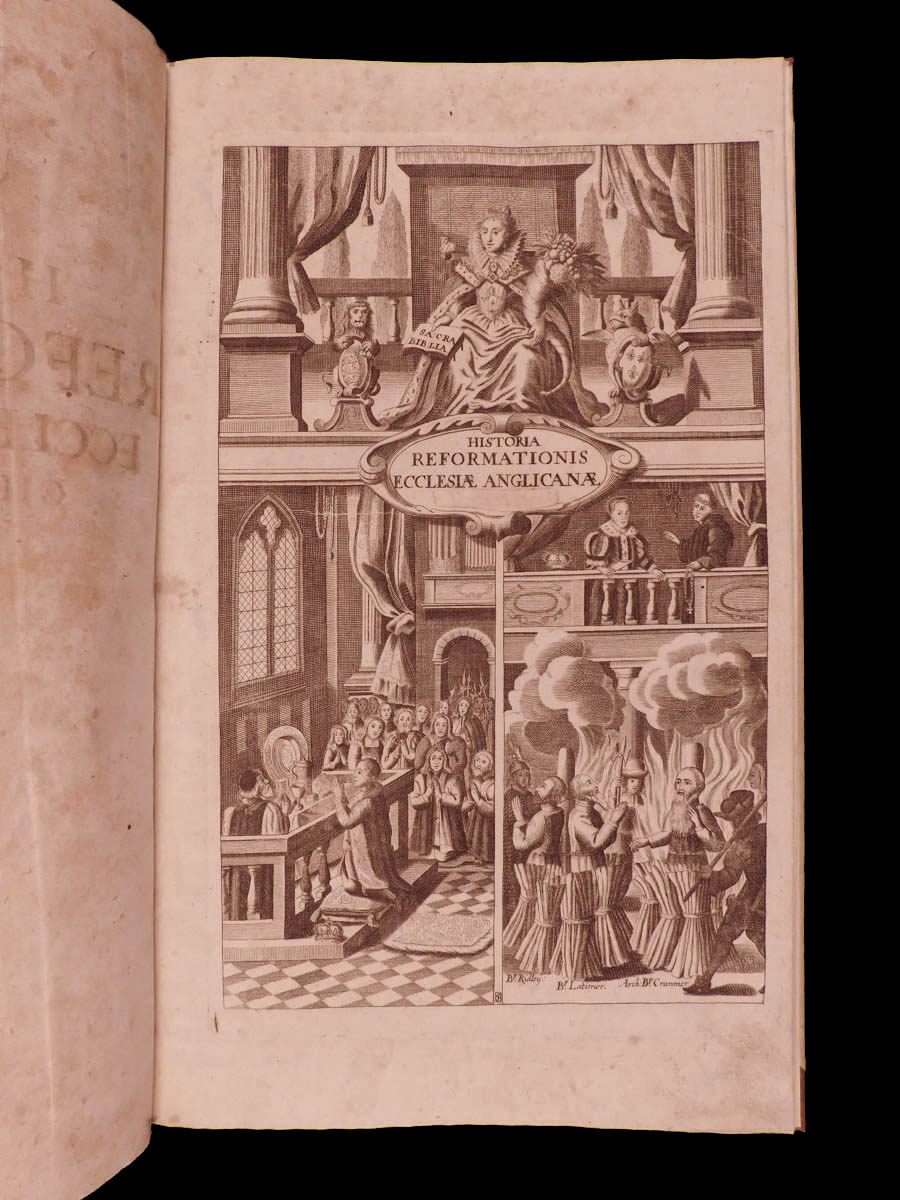 SACRA
BIBLIA
HISTORIA
REFORMATIONIS
ECCLESIÆ ANGLICANÆ
Bp. Ridley.
Bp. Latimer.
Arch: Bp. Cranmer